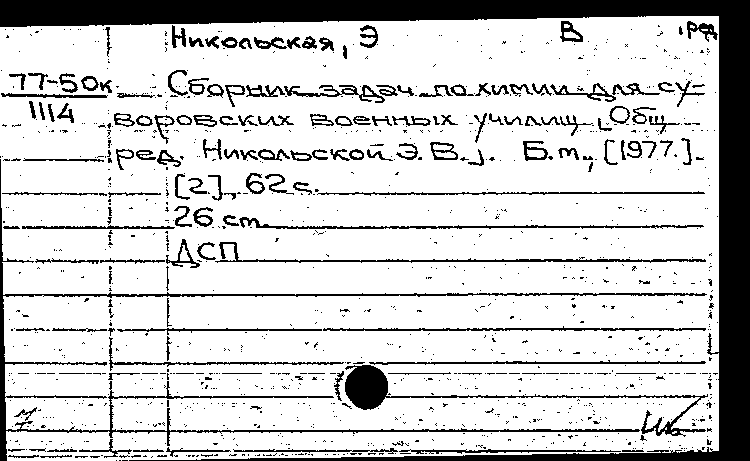 Никольская, Э В , ред
77-50к Сборник задач по химии для су-
1114 воровских военных училищ [Общ
ред. Никольской Э.В.]. Б.м., [1977.].
[2], 62 с.
26 см.
ДСП
7.